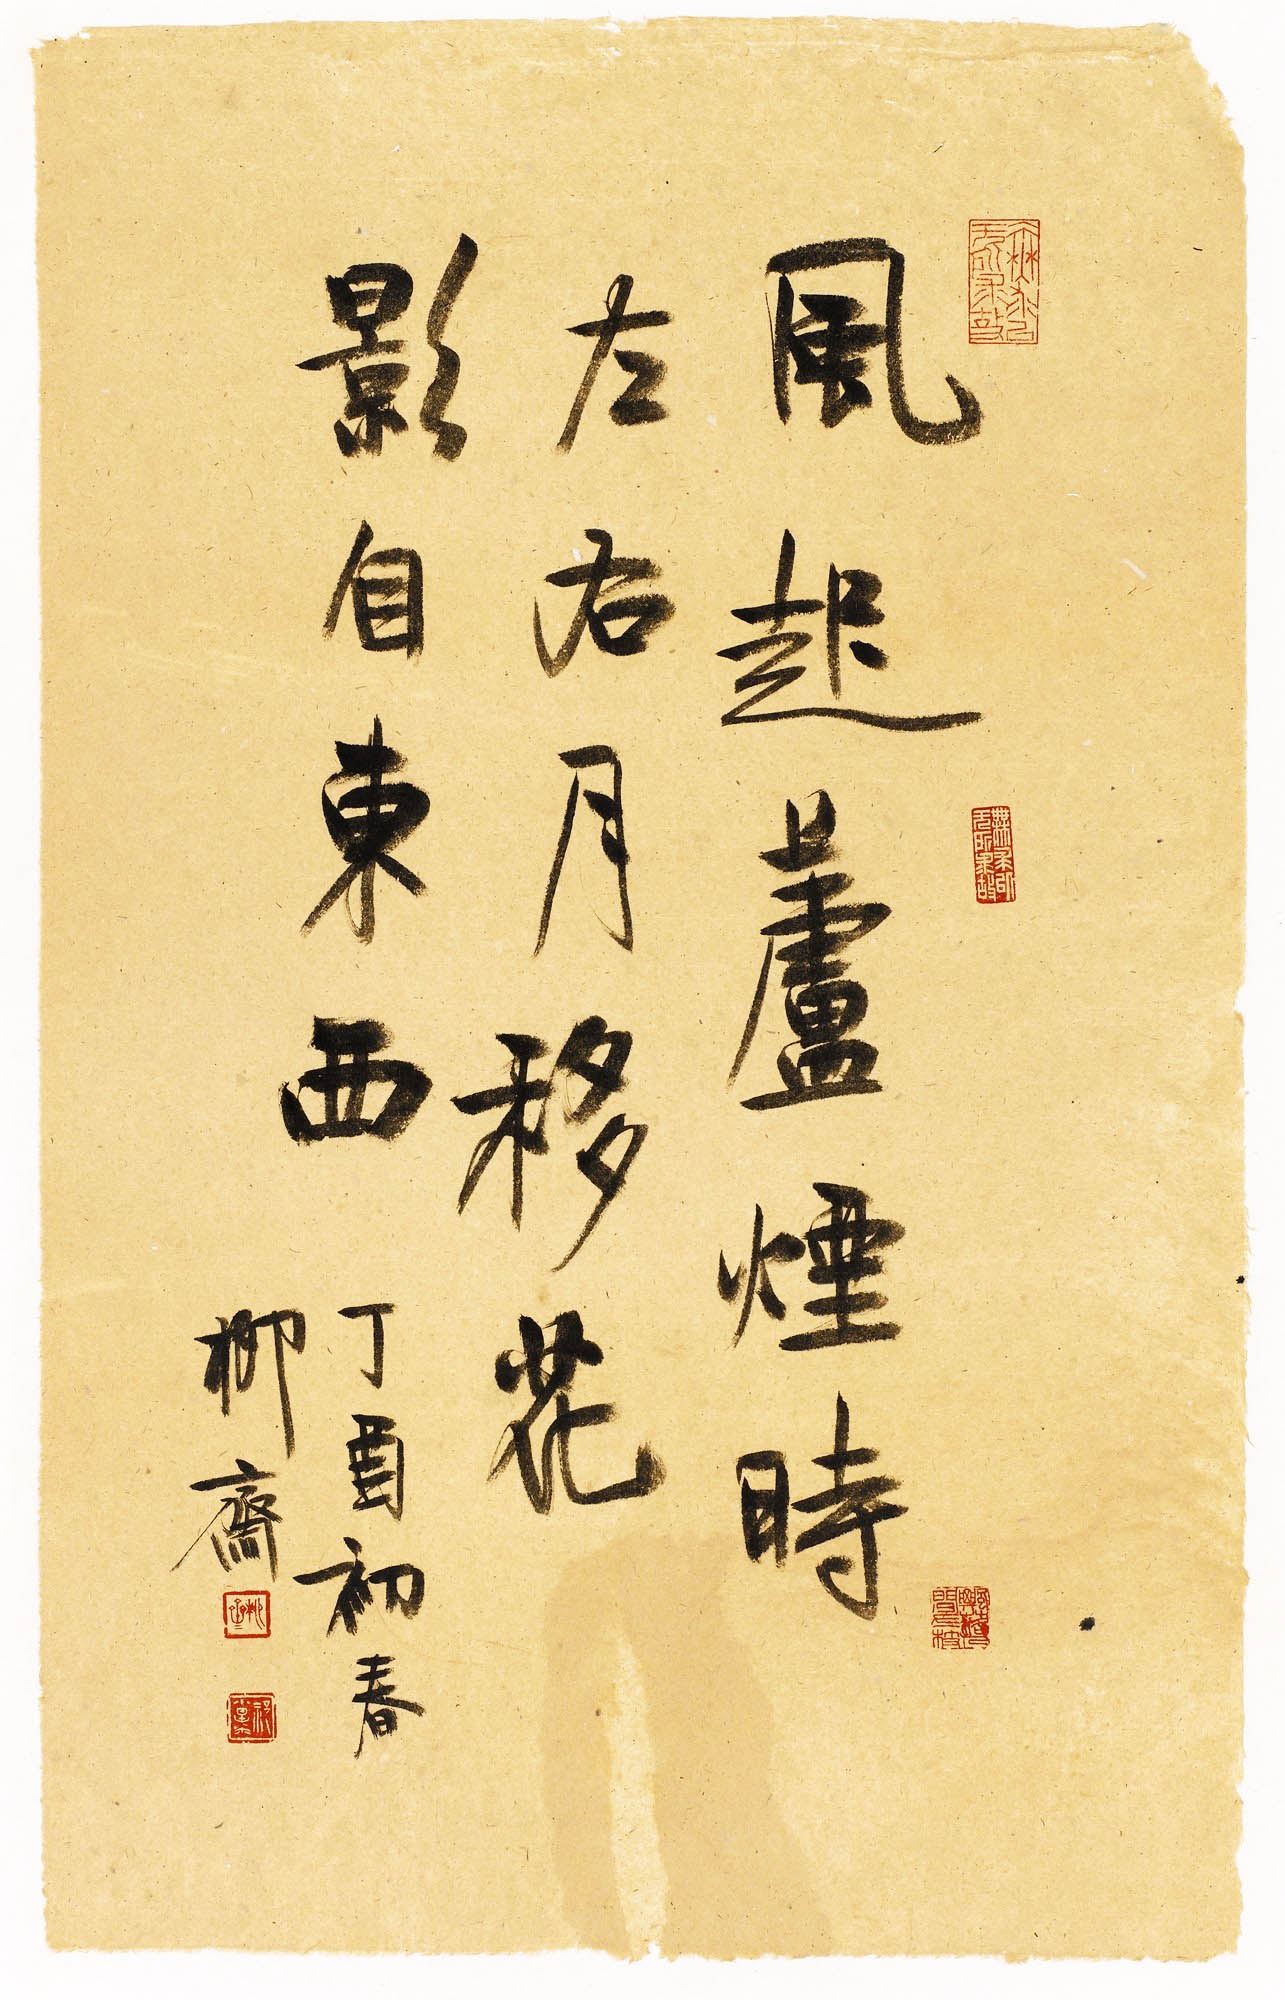 風起蘆煙時
左右月移花
影自東西
丁酉初春
柳齋